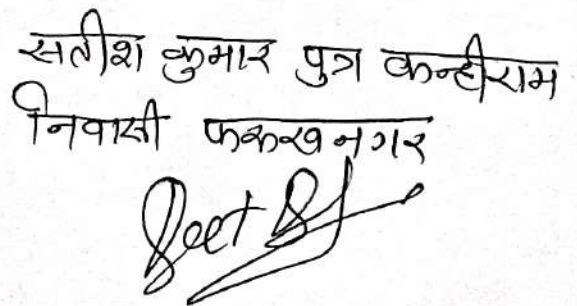 सतीश कुमार पुत्र कन्हीराम
निवासी फरूखनगर